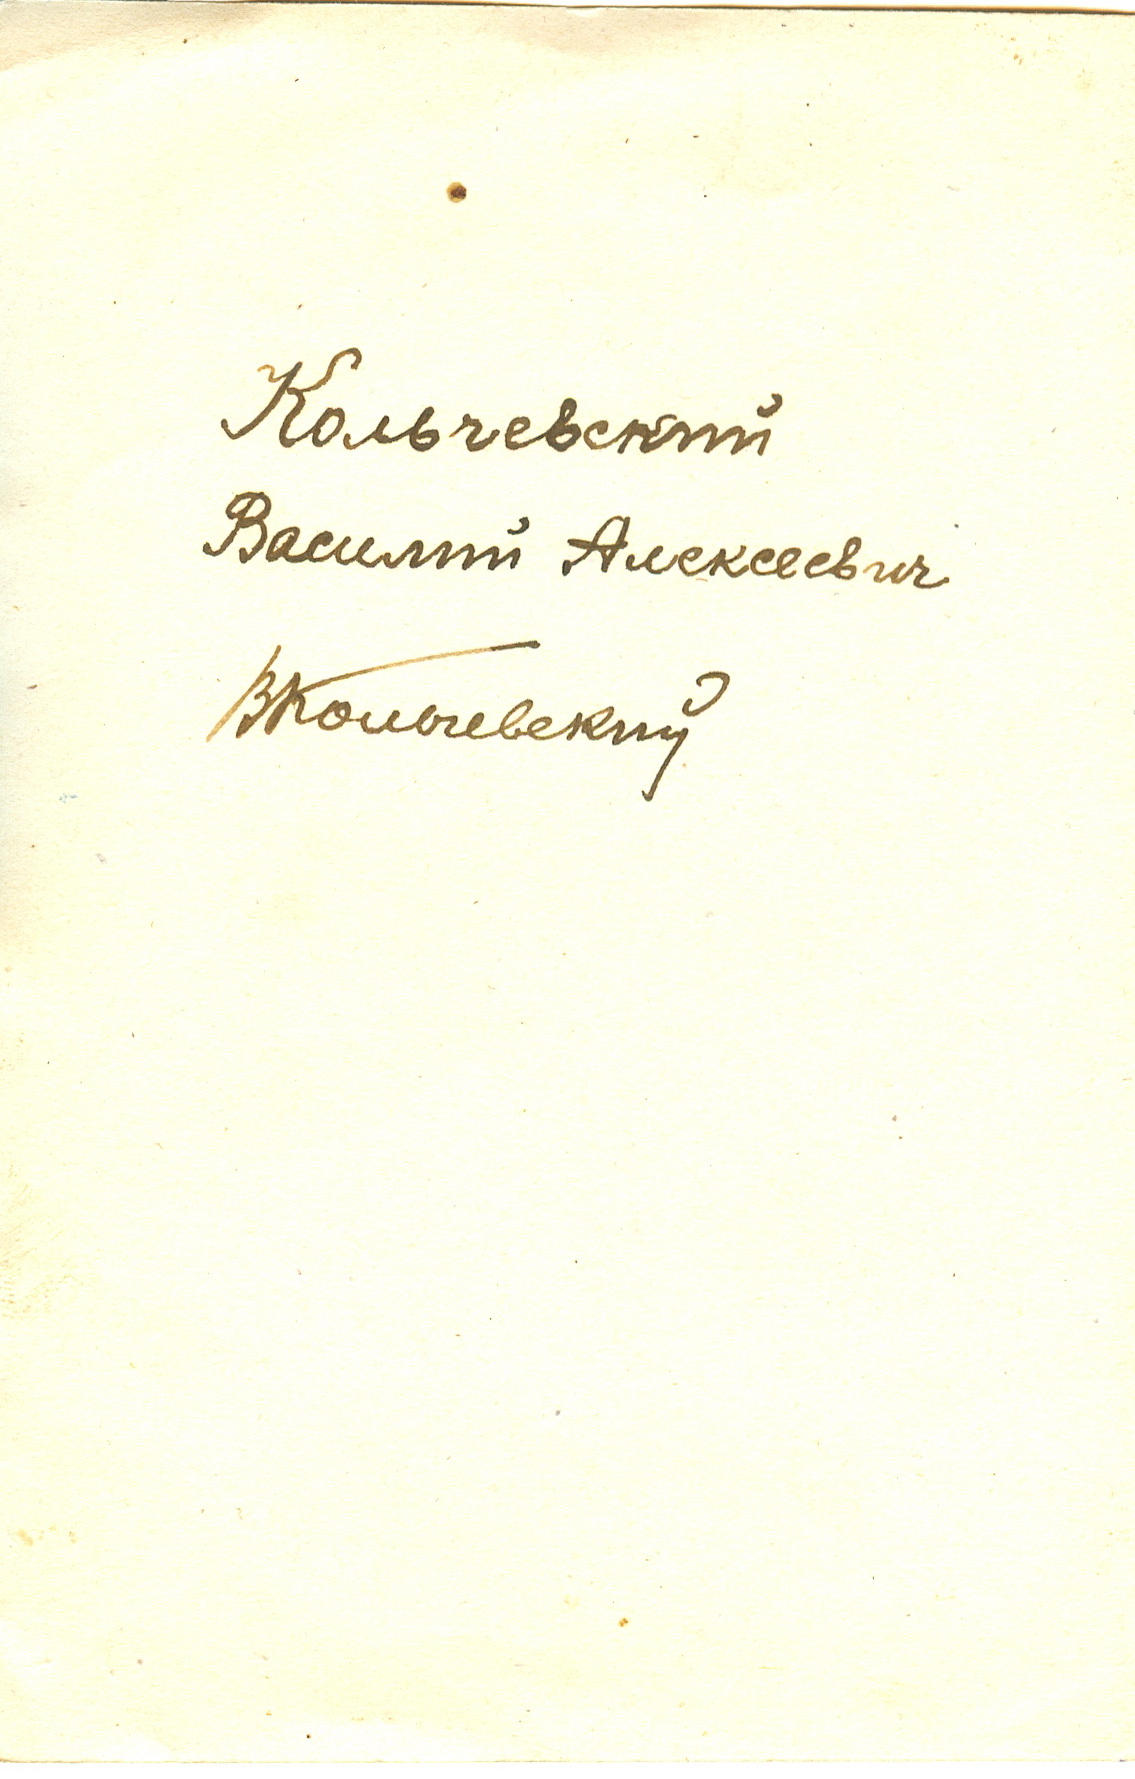 Кольчевский
Василий Алексеевич
ВКольчевский